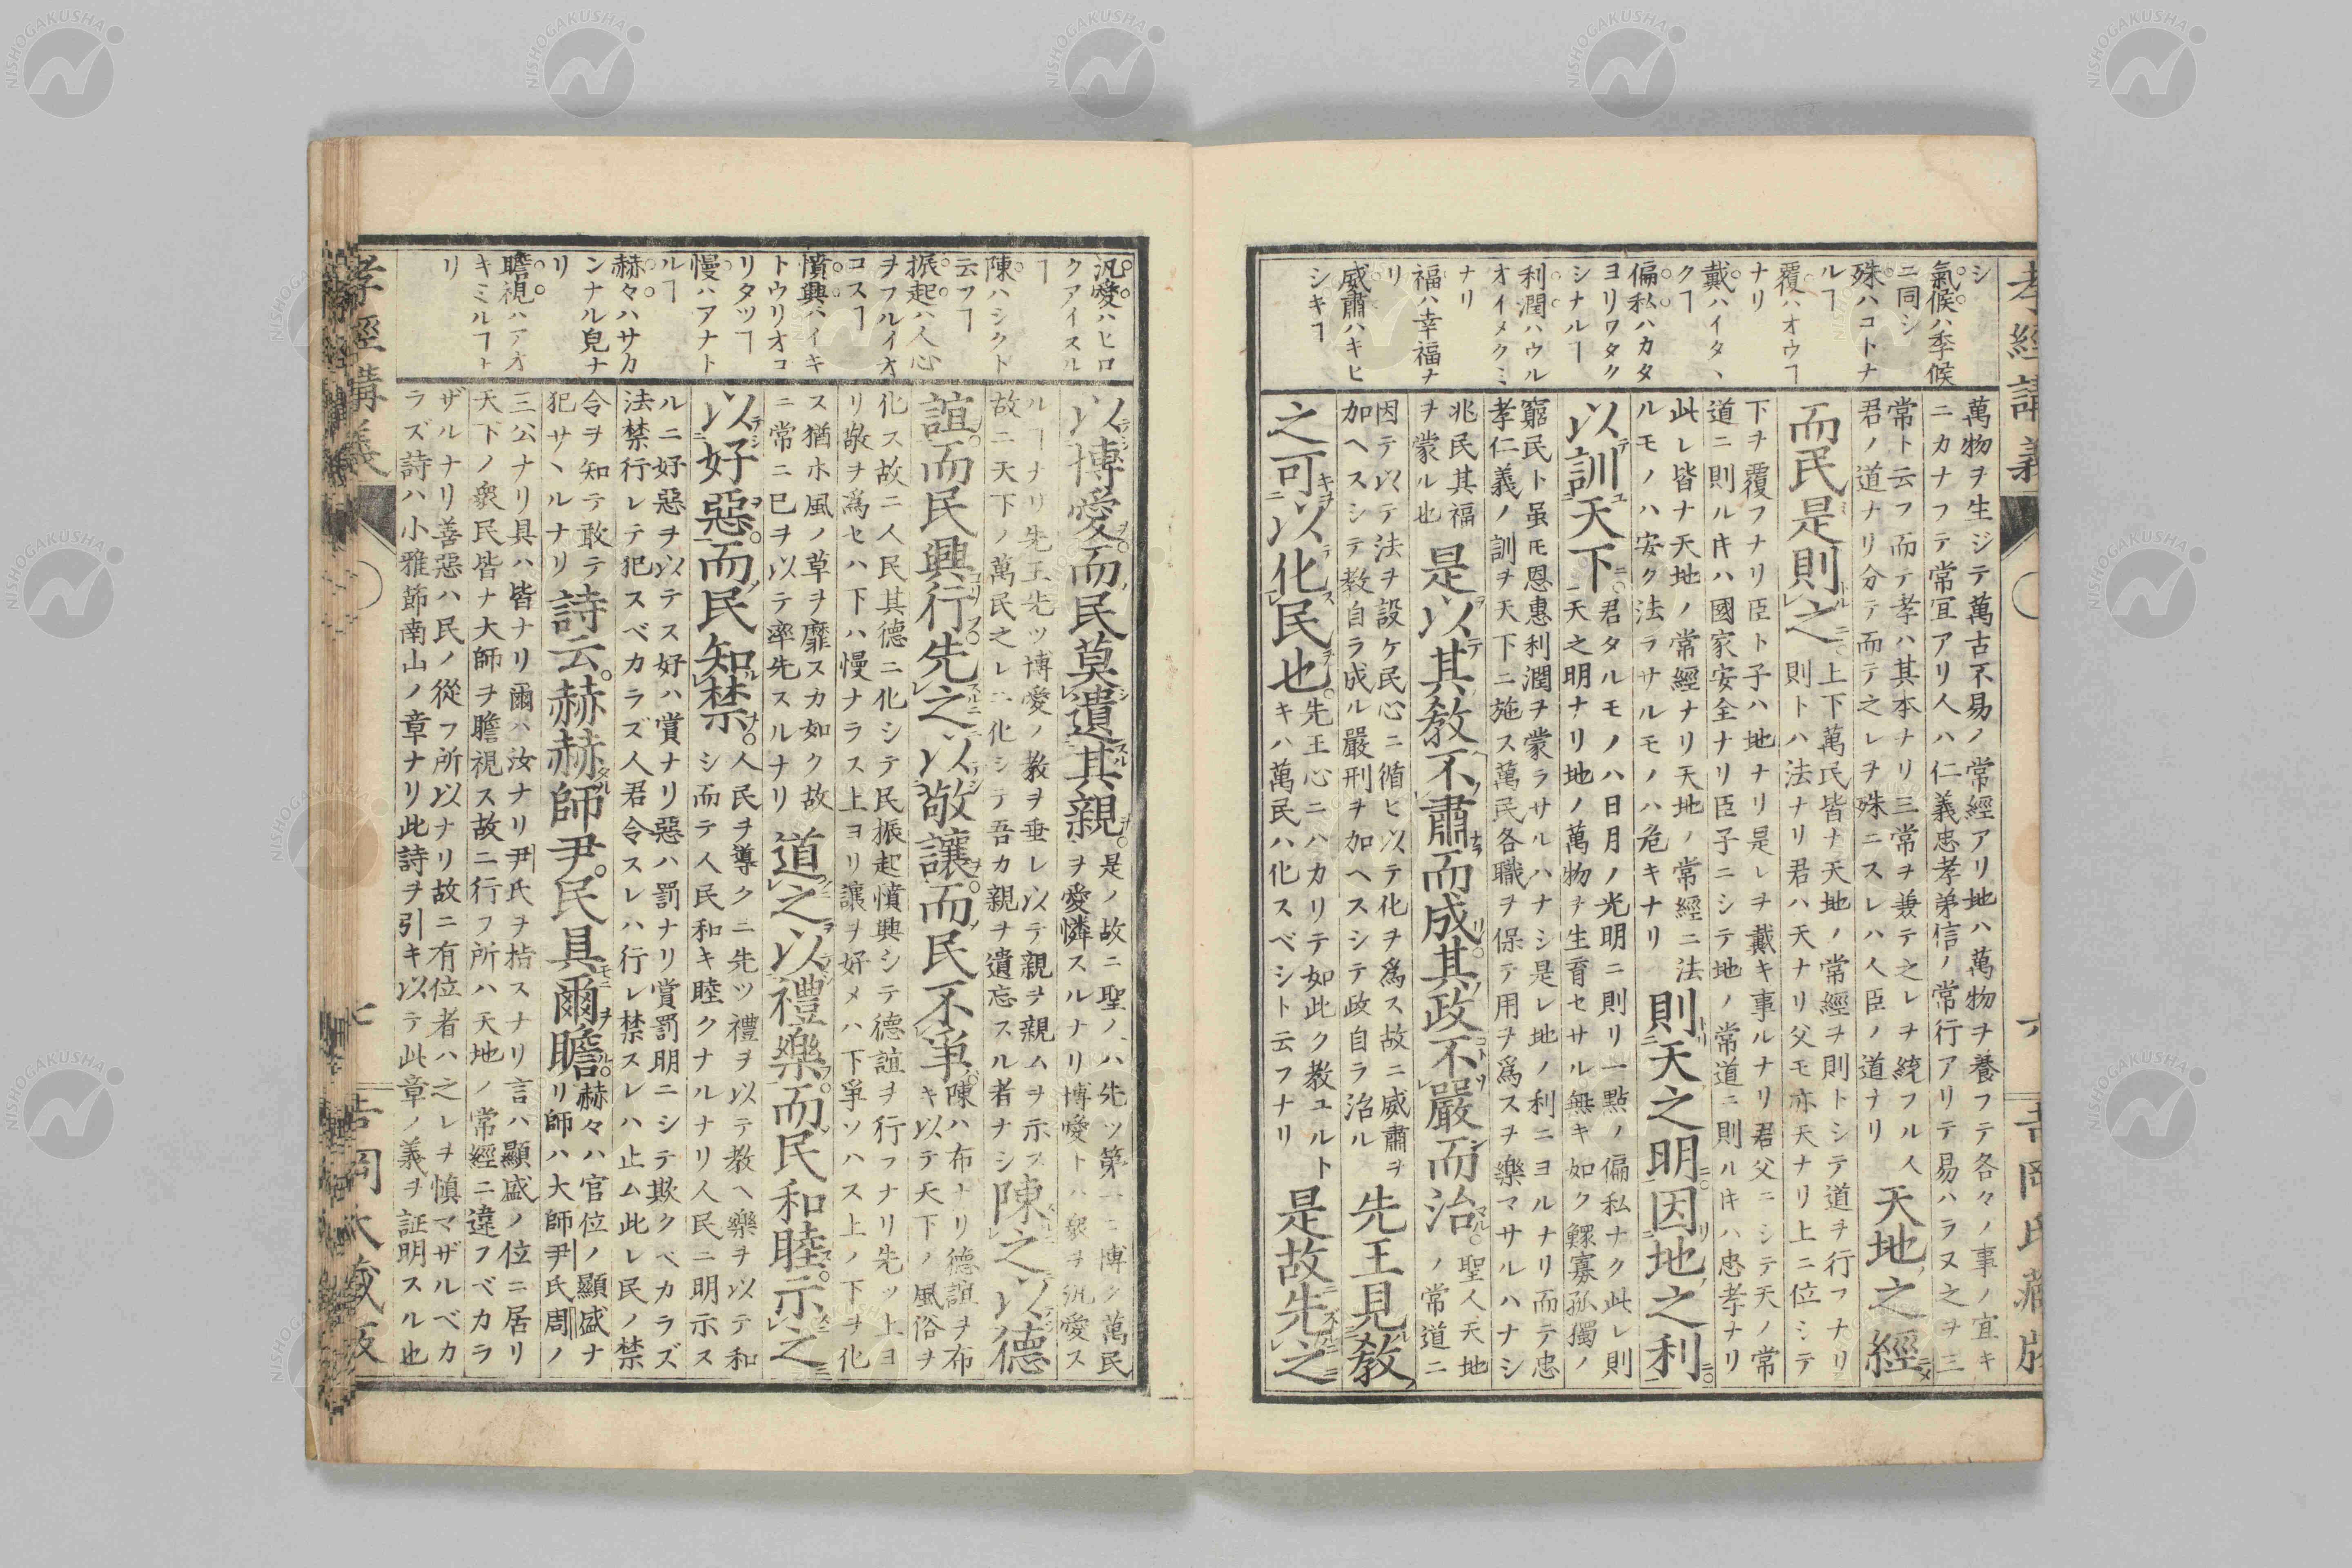 孝經講義
六
吉岡氏藏版
シ
氣候ハ季候
ニ同シ
殊ハコトナ
ルヿ
覆ハオウヿ
ナリ
戴ハイタヽ
クヿ
偏私ハカタ
ヨリワタク
シナルヿ
利潤ハウル
オイメクミ
ナリ
福ハ幸福ナ
リ
威肅ハキヒ
シキヿ
萬物ヲ生ジテ萬古不易ノ常經アリ地ハ萬物ヲ養フテ各々ノ事ノ宜キ
ニカナフテ常宜アリ人ハ仁義忠孝弟信ノ常行アリテ易ハラヌ之ヲ三
常ト云フ而テ孝ハ其本ナリ三常ヲ兼テ之レヲ統フル人
君ノ道ナリ分テ而テ之レヲ殊ニスレハ人臣ノ道ナリ
天地之經
而民是則之
上下萬民皆ナ天地ノ常經ヲ則トシテ道ヲ行フナリ
則トハ法ナリ君ハ天ナリ父モ亦天ナリ上ニ位シテ
下ヲ覆フナリ臣ト子ハ地ナリ是レヲ戴キ事ルナリ君父ニシテ天ノ常
道ニ則ル𪜈ハ國家安全ナリ臣子ニシテ地ノ常道ニ則ル𪜈ハ忠孝ナリ
此レ皆ナ天地ノ常經ナリ天地ノ常經ニ法
ルモノハ安ク法ラサルモノハ危キナリ
則天之明因地之利
以訓天下
君タルモノハ日月ノ光明ニ則リ一點ノ偏私ナク此レ則
天之明ナリ地ノ萬物ヲ生育セサル無キ如ク鰥寡孤獨ノ
窮民ト虽𪜈恩惠利潤ヲ蒙ラサルハナシ是レ地ノ利ニヨルナリ而テ忠
孝仁義ノ訓ヲ天下ニ施ス萬民各職ヲ保テ用ヲ爲スヲ樂マサルハナシ
兆民其福
ヲ蒙ル也
是以其敎不肅而成其政不嚴而治
聖人天地
ノ常道ニ
因テ以テ法ヲ設ケ民心ニ循ヒ以テ化ヲ爲ス故ニ威肅ヲ
加ヘスシテ敎自ラ成ル嚴刑ヲ加ヘスシテ政自ラ治ル
先王見敎
之可以化民也
先王心ニハカリテ如此ク敎ユルト
キハ萬民ハ化スベシト云フナリ
是故先之
汎愛ハヒロ
クアイスル
ヿ
陳ハシクト
云フヿ
振起ハ人心
ヲフルイオ
コスヿ
憤興ハイキ
トウリオコ
リタツヿ
慢ハアナト
ルヿ
赫々ハサカ
ンナル皃ナ
リ
瞻視ハアオ
キミルヿナ
リ
以博愛而民莫遺其親
是ノ故ニ聖人ハ先ツ第一ニ博ク萬民
ヲ愛憐スルナリ博愛トハ衆ヲ汎愛ス
ルヿナリ先王先ツ博愛ノ敎ヲ垂レ以テ親ヲ親ムヲ示ス
故ニ天下ノ萬民之レニ化シテ吾カ親ヲ遺忘スル者ナシ
陳之以德
誼而民興行先之以敬讓而民不爭
陳ハ布ナリ德誼ヲ布
キ以テ天下ノ風俗ヲ
化ス故ニ人民其德ニ化シテ民振起憤興シテ德誼ヲ行フナリ先ッ上ヨ
リ敬ヲ爲セハ下ハ慢ナラス上ヨリ讓ヲ好メハ下爭ソハス上ノ下ヲ化
ス猶ホ風ノ草ヲ靡スカ如ク故
ニ常ニ已ヲ以テ率先スルナリ
道之以禮樂而民和睦示之
以好惡而民知禁
人民ヲ導クニ先ツ禮ヲ以テ敎ヘ樂ヲ以テ和
シ而テ人民和キ睦クナルナリ人民ニ明示ス
ルニ好惡ヲ以テス好ハ賞ナリ惡ハ罰ナリ賞罰明ニシテ欺クベカラズ
法禁行レテ犯スベカラズ人君令スレハ行レ禁スレハ止ム此レ民ノ禁
令ヲ知テ敢テ
犯サヽルナリ
詩云赫赫師尹民具爾瞻
赫々ハ官位ノ顯盛ナ
リ師ハ大師尹氏周ノ
三公ナリ具ハ皆ナリ爾ハ汝ナリ尹氏ヲ指スナリ言ハ顯盛ノ位ニ居リ
天下ノ衆民皆ナ大師ヲ瞻視ス故ニ行フ所ハ天地ノ常經ニ違フベカラ
ザルナリ善惡ハ民ノ從フ所以ナリ故ニ有位者ハ之レヲ愼マザルベカ
ラズ詩ハ小雅節南山ノ章ナリ此詩ヲ引キ以テ此章ノ義ヲ証明スル也
孝經講義
七
NISHOGAKUSHA